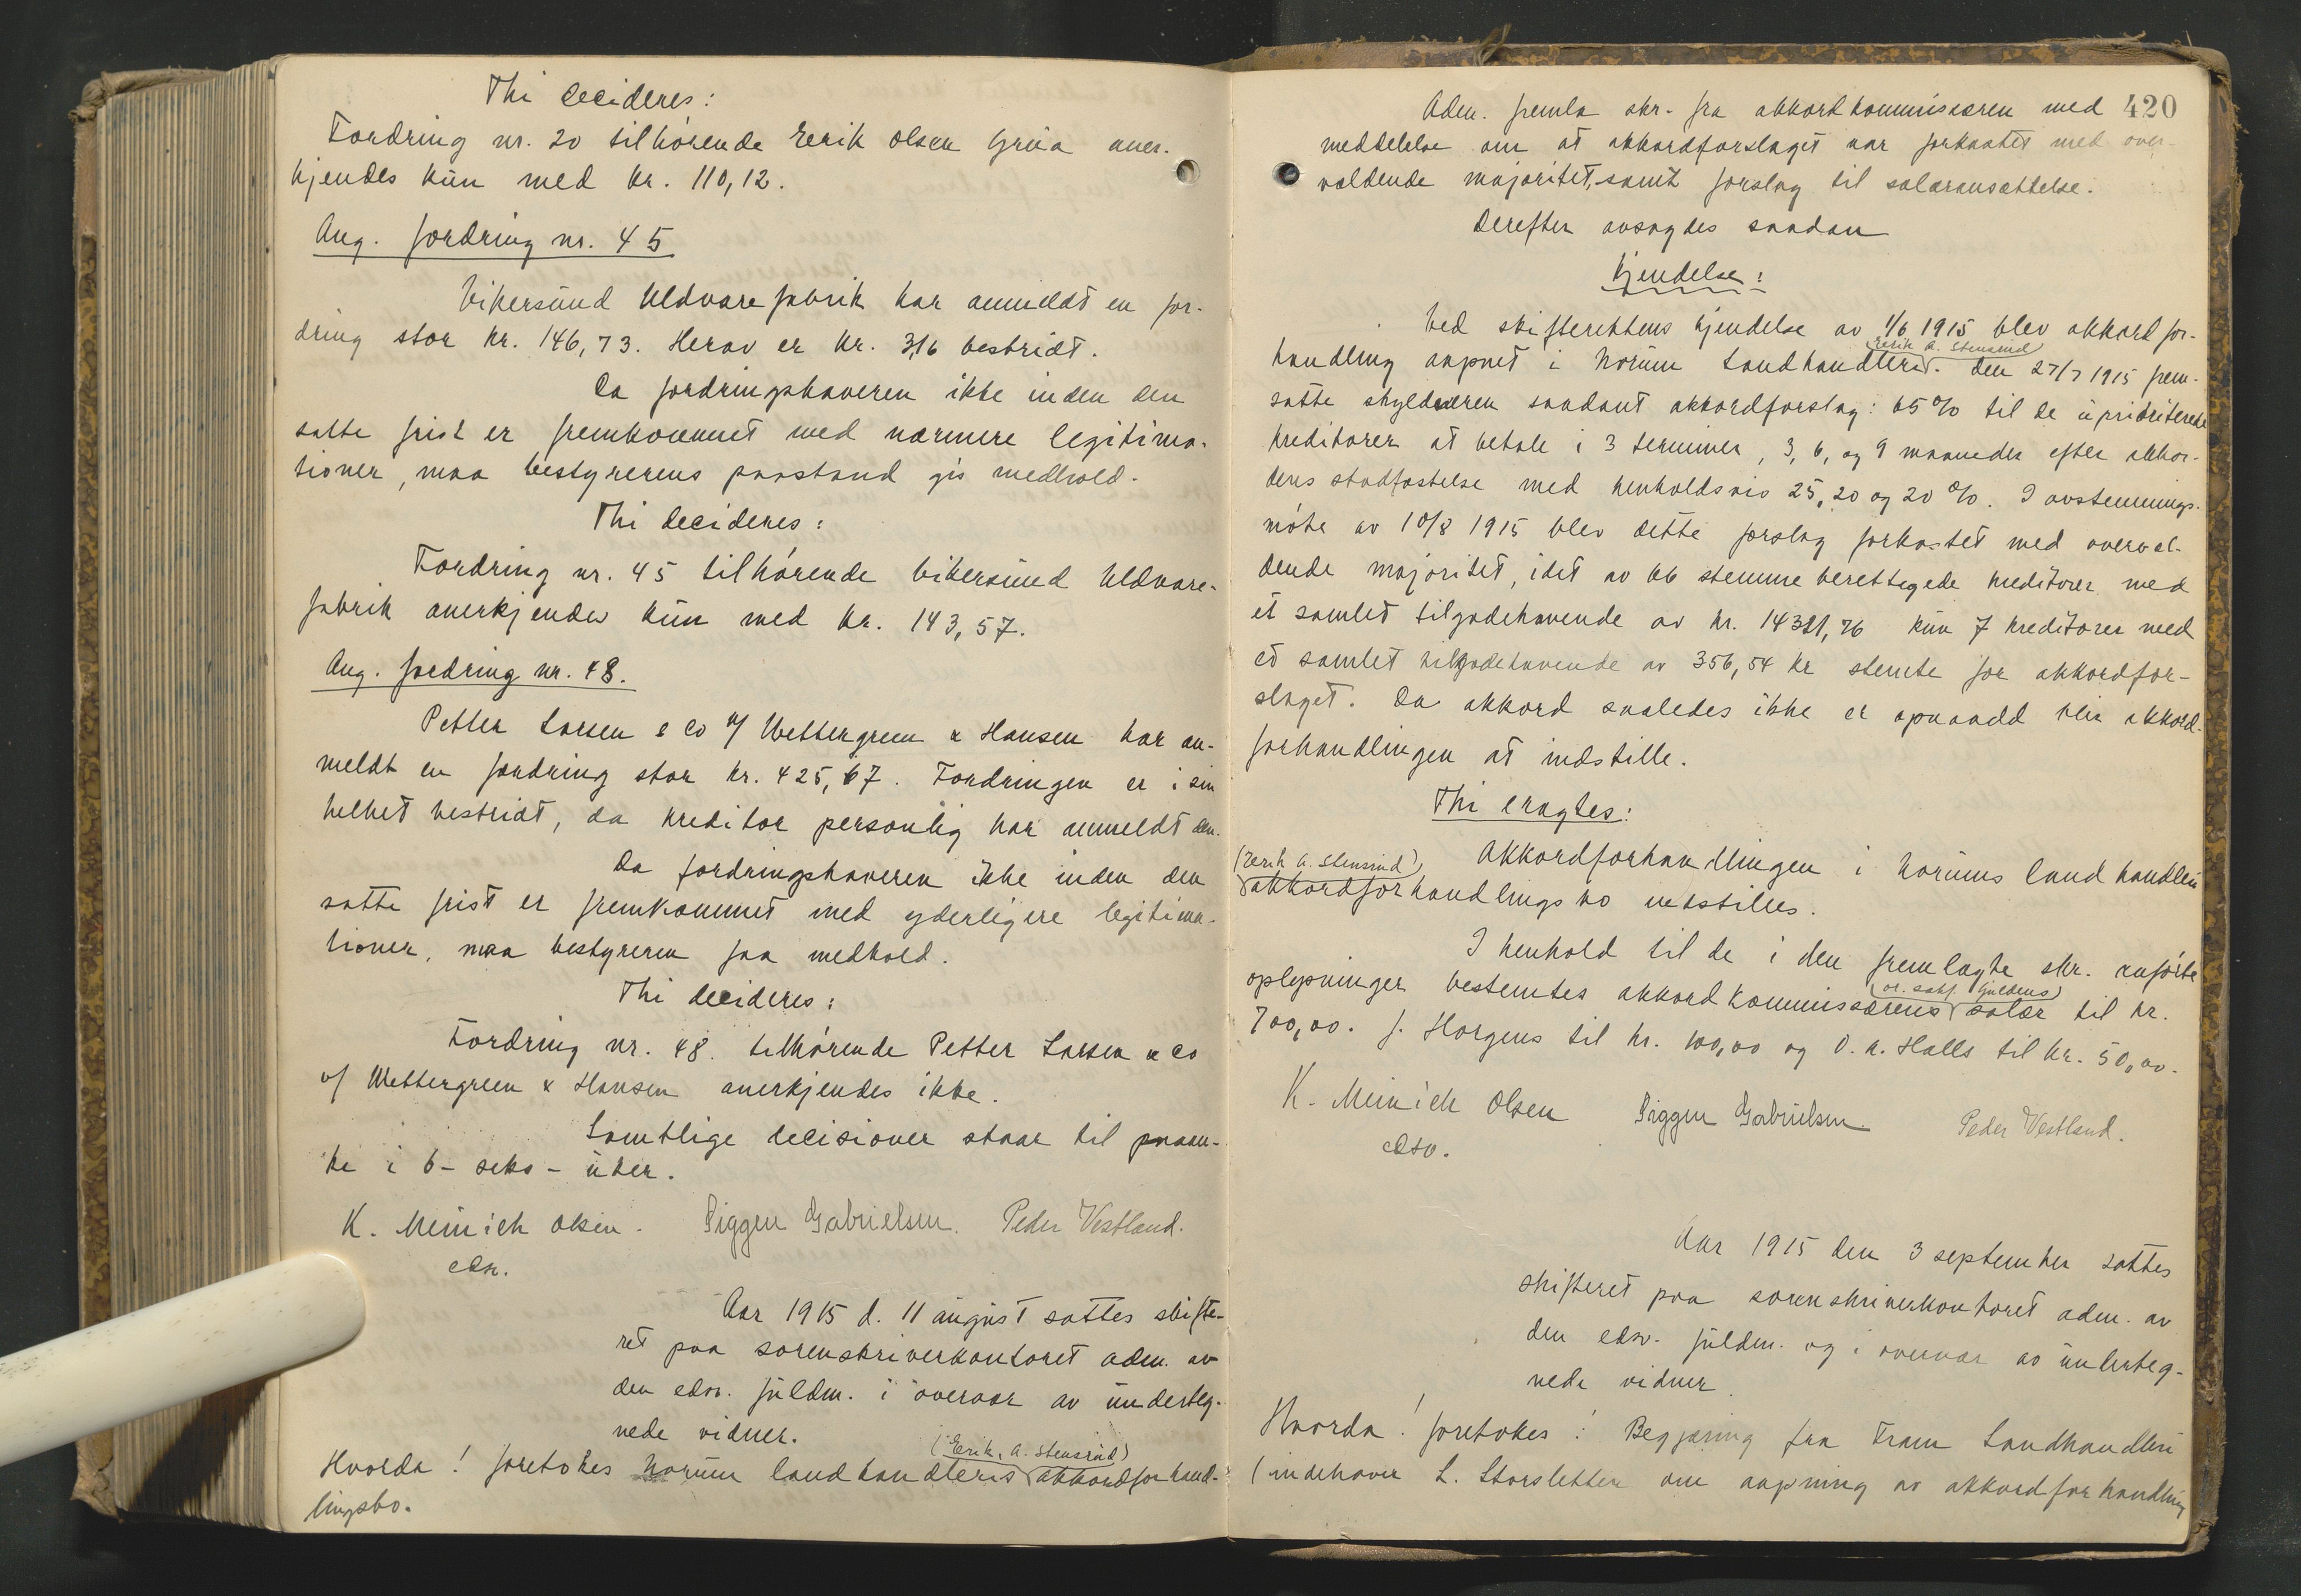 Thi decideres:
Fordring nr. 20 tilhörende Eerik Olsen Grüa aner-
kjendes kün med kr. 110,12.
Ang. fordring nr. 45
Vikersünd Uldvarefabrik har anmeldt en for-
dring stor kr. 146,73. Herav er kr. 3,16 bestridt.
Da fordringshaveren ikke inden den
satte frist er fremkommet med nærmere legitima-
tioner, maa bestyrerens paastand gis medhold.
Thi decideres:
Fordring nr. 45 tilhörende Vikersünd Uldvare-
fabrik anerkjendes kün med kr. 143,57.
Ang. fordring nr. 48.
Petter Larsen & Co v/ Wettergreen & Hansen har an-
meldt en fordring stor kr. 425,67. Fordringen er i sin
helhet bestridt, da kreditor personlig har anmeldt den.
Da fordringshaveren ikke inden den
satte frist er fremkommet med yderligere legitima-
tioner, maa bestyreren faa medhold.
Thi decideres:
Fordring nr. 48. tilhörende Petter Larsen & Co
v/ Wettergreen & Hansen anerkjendes ikke.
Samtlige decisioner staar til paaan-
ke i 6 - seks - üker.
K. Meinich Olsen. Siggen Gabrielsen. Peder Vestland.
edsv.
Aar 1915 d. 11 aügüst sattes skifte-
ret paa sorenskriverkontoret adm. av
den edsv. füldm. i overvær av ündertég-
nede vidner.
(Eerik A. Stensrüd)
Hvorda! foretokes Norüm landhandleris akkordforhand-
lingsbo.
420
Adm. fremla skr. fra akkordkommissæren med
meddelelse om at akkordforslaget var forkastet med over-
vældende majoritet, samt forslag til salæransættelse.
Derefter avsagdes saadan
Kjendelse:
Ved skifterettens kjendelse av 1/6 1915 blev akkordfor-
(Eerik A. Stensrud)
handling aapnet i Norüm Landhandleri. Den 27/7 1915 frem-
satte skyldneren saadant akkordforslag: 65 % til de üprioriterede
kreditorer at betale i 3 terminer, 3, 6, og 9 maaneder efter akkor-
dens stadfæstelse med henholdsvis 25, 20 og 20 %. I avstemnings-
möte av 10/8 1915 blev dette forslag forkastet med overvæl-
dende majoritet, idet av 66 stemmeberettigede kreditorer med
et samlet tilgodehavende av kr. 14321,76 kün 7 kreditorer med
et samlet tilgodehavende av 356,54 kr stemte for akkordfor-
slaget. Da akkord saaledes ikke er opnaadd blir akkord-
forhandlingen at indstille.
Thi eragtes:
Akkordforhandlingen i Norüms landhandleri
(Eerik A. Stensrüd)
akkordforhandlingsbo indstilles.
I henhold til de i den fremlagte skr. anförte
(or. sakf. Güldens)
oplysninger bestemtes akkordkommissærens salær til kr.
700,00. J. Horgens til kr. 100,00 og O. A. Halls til kr. 50,00.
K. Meinich Olsen Siggen Gabrielsen. Peder Vestland.
edsv.
Aar 1915 den 3 september sattes
skifteret paa sorenskriverkontoret adm. av
den edsv. füldm. og i overvær av ünderteg-
nede vidner.
Hvorda! foretokes: Begjæring fra Fram Landhandleri
(indehaver L. Storsletten om aapning av akkordforhandling